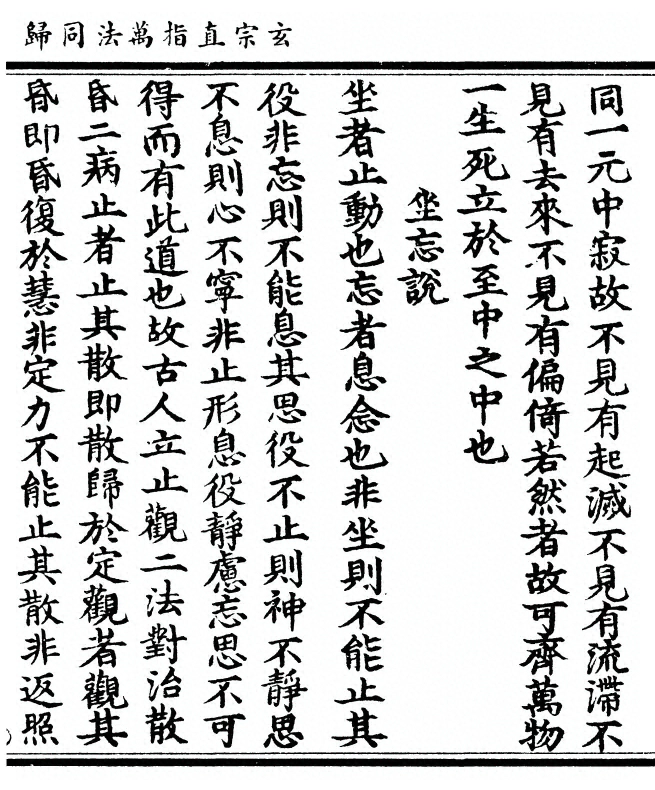 玄宗直指萬法同歸
同一元中寂故不見有起滅不見有流滯不
見有去來不見有偏倚若然者故可齊萬物
一生死立於至中之中也
坐忘說
坐者止動也忘者息念也非坐則不能止其
役非忘則不能息其思役不止則神不靜思
不息則心不寧非止形息役靜慮忘思不可
得而有此道也故古人立止觀二法對治散
昏二病止者止其散即散歸於定觀者觀其
昏即昏復於慧非定力不能止其散非返照